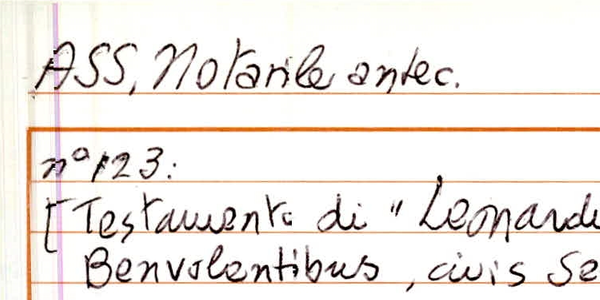 ASS, Notarile antec.
n° 123:
[Testamento di "Leonard
Benvolentibus, civis Se